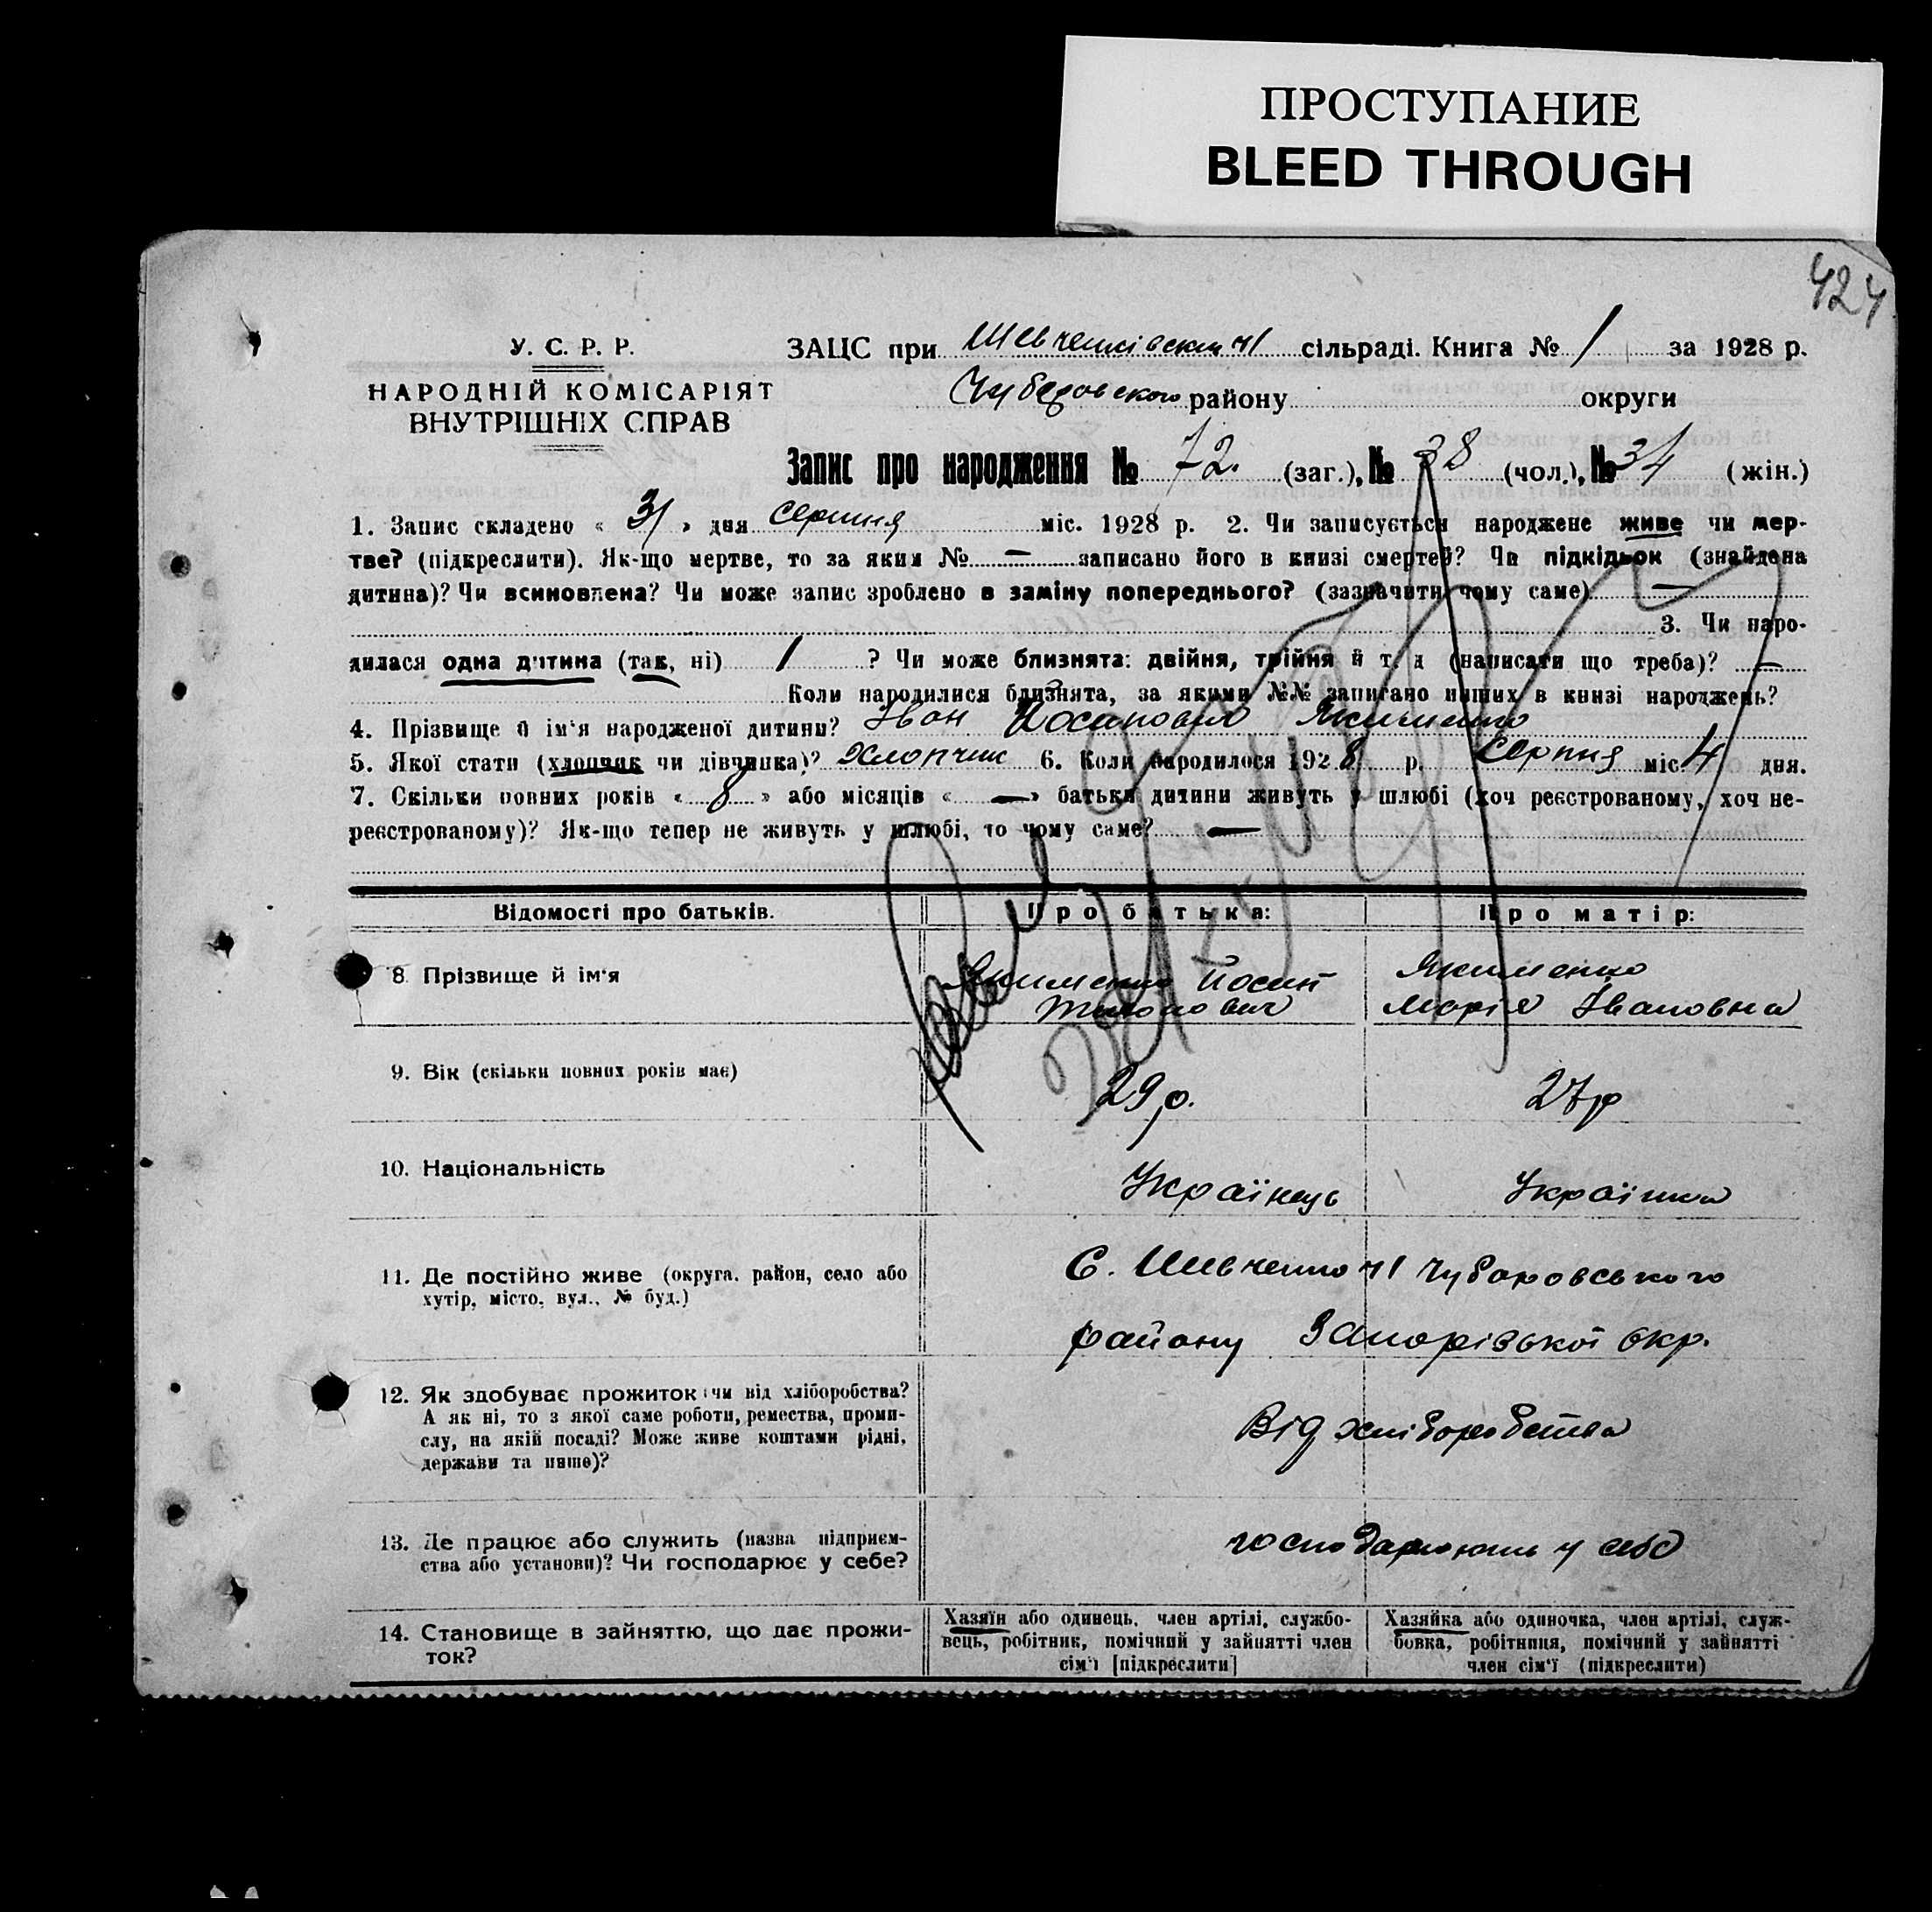 ПРОСТУПАНИЕ
BLEED THROUGH
424
У. С. Р. Р.
НАРОДНІЙ КОМІСАРІЯТ
ВНУТРІШНІХ СПРАВ
ЗАЦС при Шевченківский №1 сільраді. Книга № 1 за 1928 р.
Чубаровского району округи
Запис про народження № 72. (заг.), № 38 (чол.), № 34 (жін.)
1. Запис складено « 31 » дня серпня міс. 1928 р. 2. Чи записується народжене живе чи мер-
тве? (підкреслити). Як-що мертве, то за яким № — записано його в книзі смертей? Чи підкідьок (знайдена
дитина)? Чи всиновлена? Чи може запис зроблено в заміну попереднього? (зазначити чому саме) —
3. Чи наро-
дилася одна дитина (так, ні) 1 ? Чи може близнята: двійня, трійня й т. д (написати що треба)? —
Коли народилися близнята, за якими №№ записано инших в книзі народжень?
4. Прізвище й ім'я народженої дитини? Іван Йосипович Якименко
5. Якої стати (хлопчик чи дівчинка)? Хлопчик 6. Коли народилося 1928 р. Серпня міс. 4 дня.
7. Скільки повних років « 8 » або місяців « — » батьки дитини живуть у шлюбі (хоч реєстрованому, хоч не-
реєстрованому)? Як-що тепер не живуть у шлюбі, то чому саме? —
Відомості про батьків. Про батька: Про матір:
8. Прізвище й ім'я Якименко Йосип Якименко
Марія Івановна
9. Вік (скільки повних років має) 29 р. 27 р
10. Національність Українець Українка
11. Де постійно живе (округа, район, село або
хутір, місто, вул., № буд.)
С. Шевченко №1 Чубаровського
району Запорізької окр.
12. Як здобуває прожиток: чи від хліборобства?
А як ні, то з якої саме роботи, ремества, проми-
слу, на якій посаді? Може живе коштами рідні,
держави та инше)?
Від хліборобства
13. Де працює або служить (назва підприєм-
ства або установи)? Чи господарює у себе?
господарюють у себе
14. Становище в зайняттю, що дає прожи-
ток?
Хазяїн або одинець, член артілі, службо-
вець, робітник, помічний у зайнятті член
сім'ї [підкреслити]
Хазяйка або одиночка, член артілі, служ-
бовка, робітниця, помічний у зайнятті
член сім'ї (підкреслити)